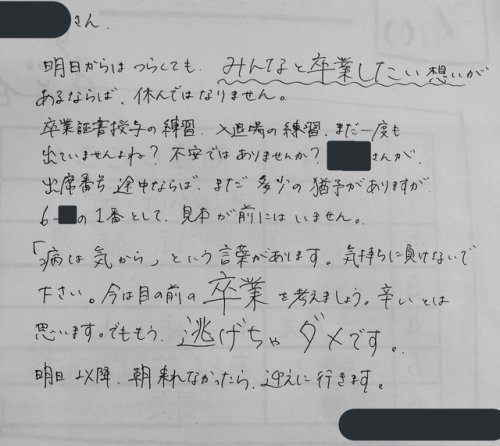 さん.
明日からは つらくても、みんなと卒業したい想いが
あるならば、休んではなりません。
卒業証書授与の練習、入退場の練習、まだ一度も
出ていませんよね? 不安ではありませんか? さんが、
出席番号 途中ならば、まだ 多少の猶予がありますが、
6-の1番として、見本が前にはいません。
「病は気から」という言葉があります。気持ちに負けないで
下さい。今は目の前の 卒業 を考えましょう。辛いとは
思います。でももう、逃げちゃダメです。
明日以降、朝来れなかったら、迎えに行きます。